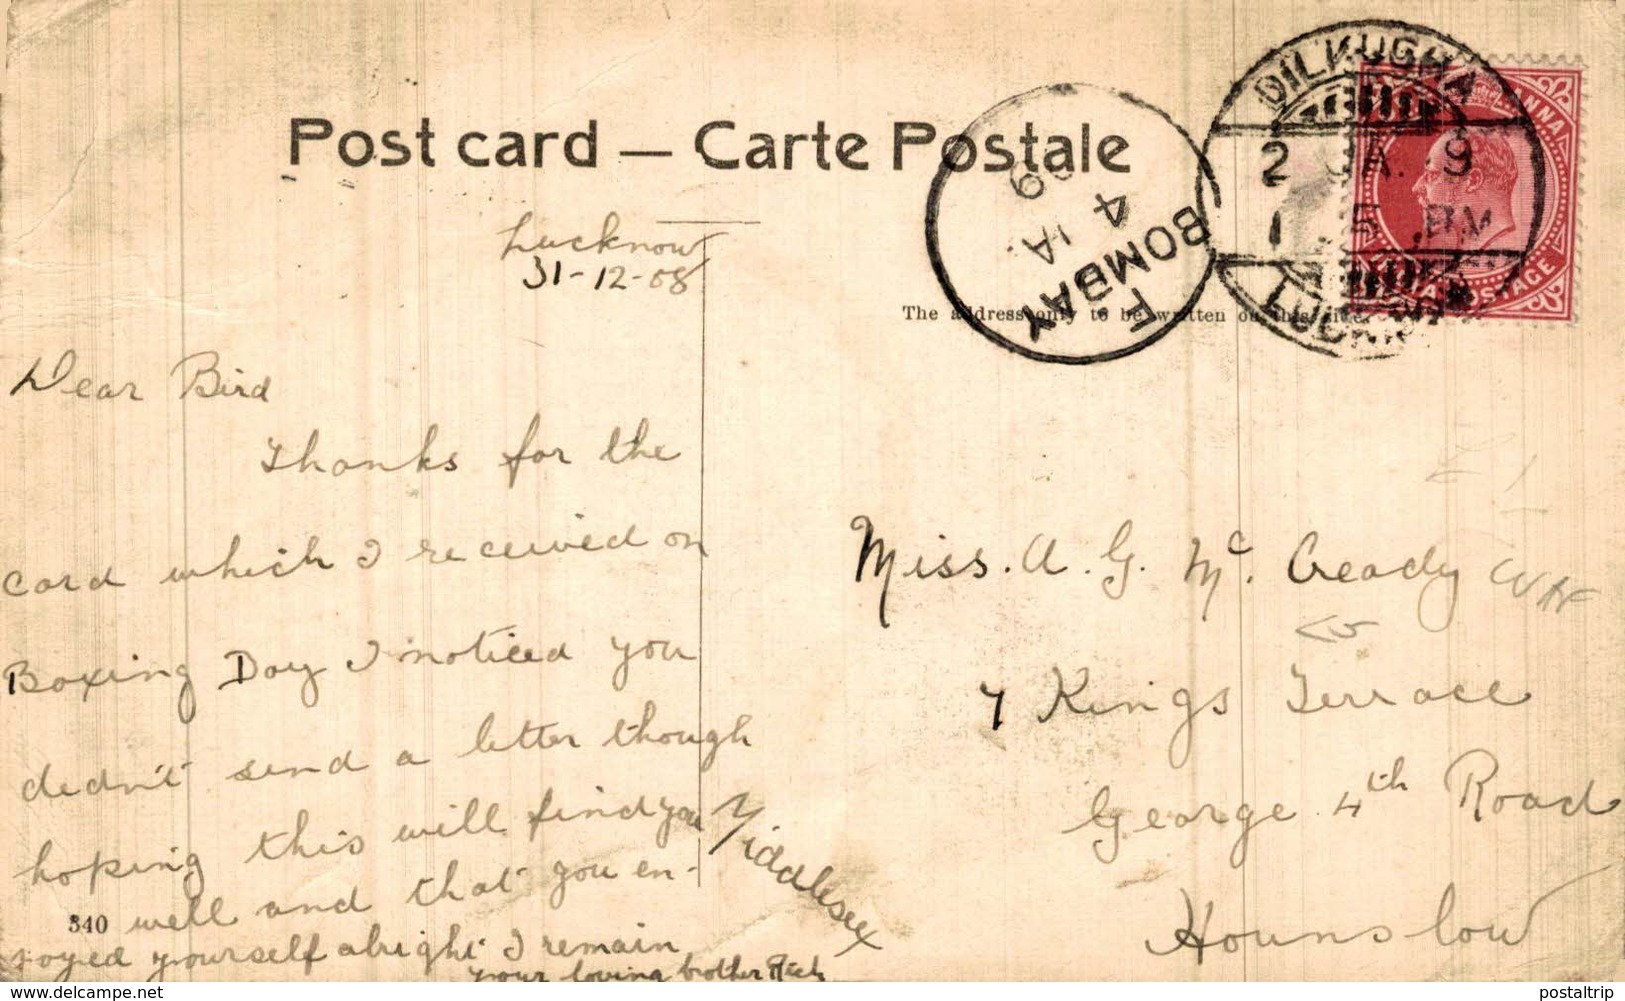 Post card — Carte Postale
Lucknow
31-12-08
The address only to be written on this side
Dear Bird
Thanks for the
card which I received on
Boxing Day I noticed you
didn't send a letter though
hoping this will find you
well and that you en-
joyed yourself alright I remain
your loving brother Rich
340
Miss. A. G. Mc. Cready
7 Kings Terrace
George 4th Road
Hounslow
Middlesex
BOMBAY
4 JA.
09
DILKUSHA
2 JA. 9
LUCKNOW
ANNA
POSTAGE
www.delcampe.net
postaltrip